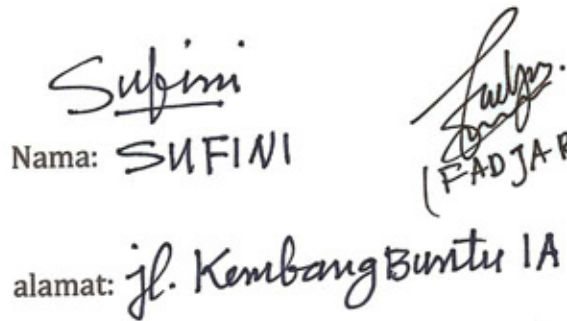 Sufini
Nama: SUFINI
(FADJAR
alamat: jl. Kembang Buntu 1A